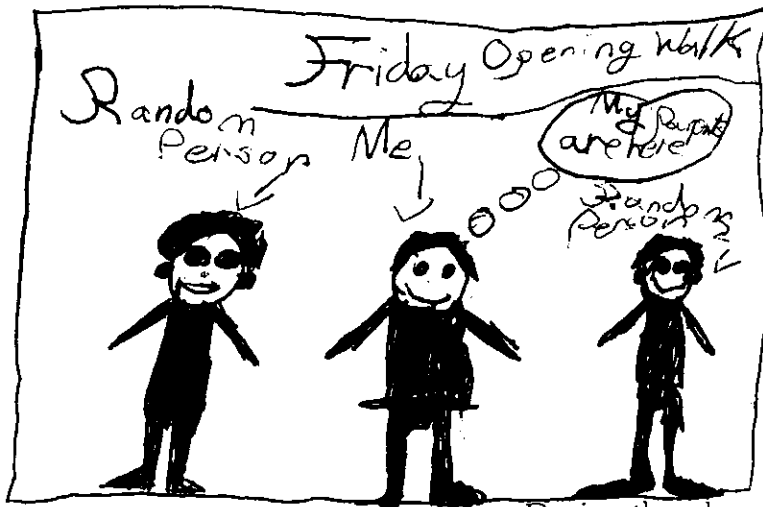 Friday Opening Walk
Random
Person
Me
My parents
are here
Random
Person